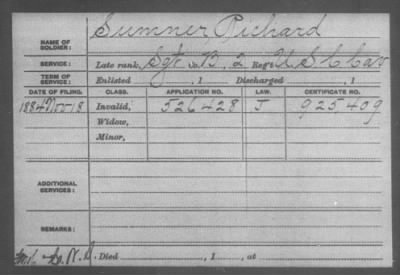 NAME OF SOLDIER: Sumner Richard
SERVICE: Late rank, Sgt Co. B, 2 Reg't U S C Cav
TERM OF SERVICE: Enlisted , 1 Discharged , 1
DATE OF FILING. CLASS. APPLICATION NO. LAW. CERTIFICATE NO.
1884 Nov 18 Invalid, 526428 J 925409
Widow,
Minor,
ADDITIONAL SERVICES:
REMARKS:
Died , 1 , at